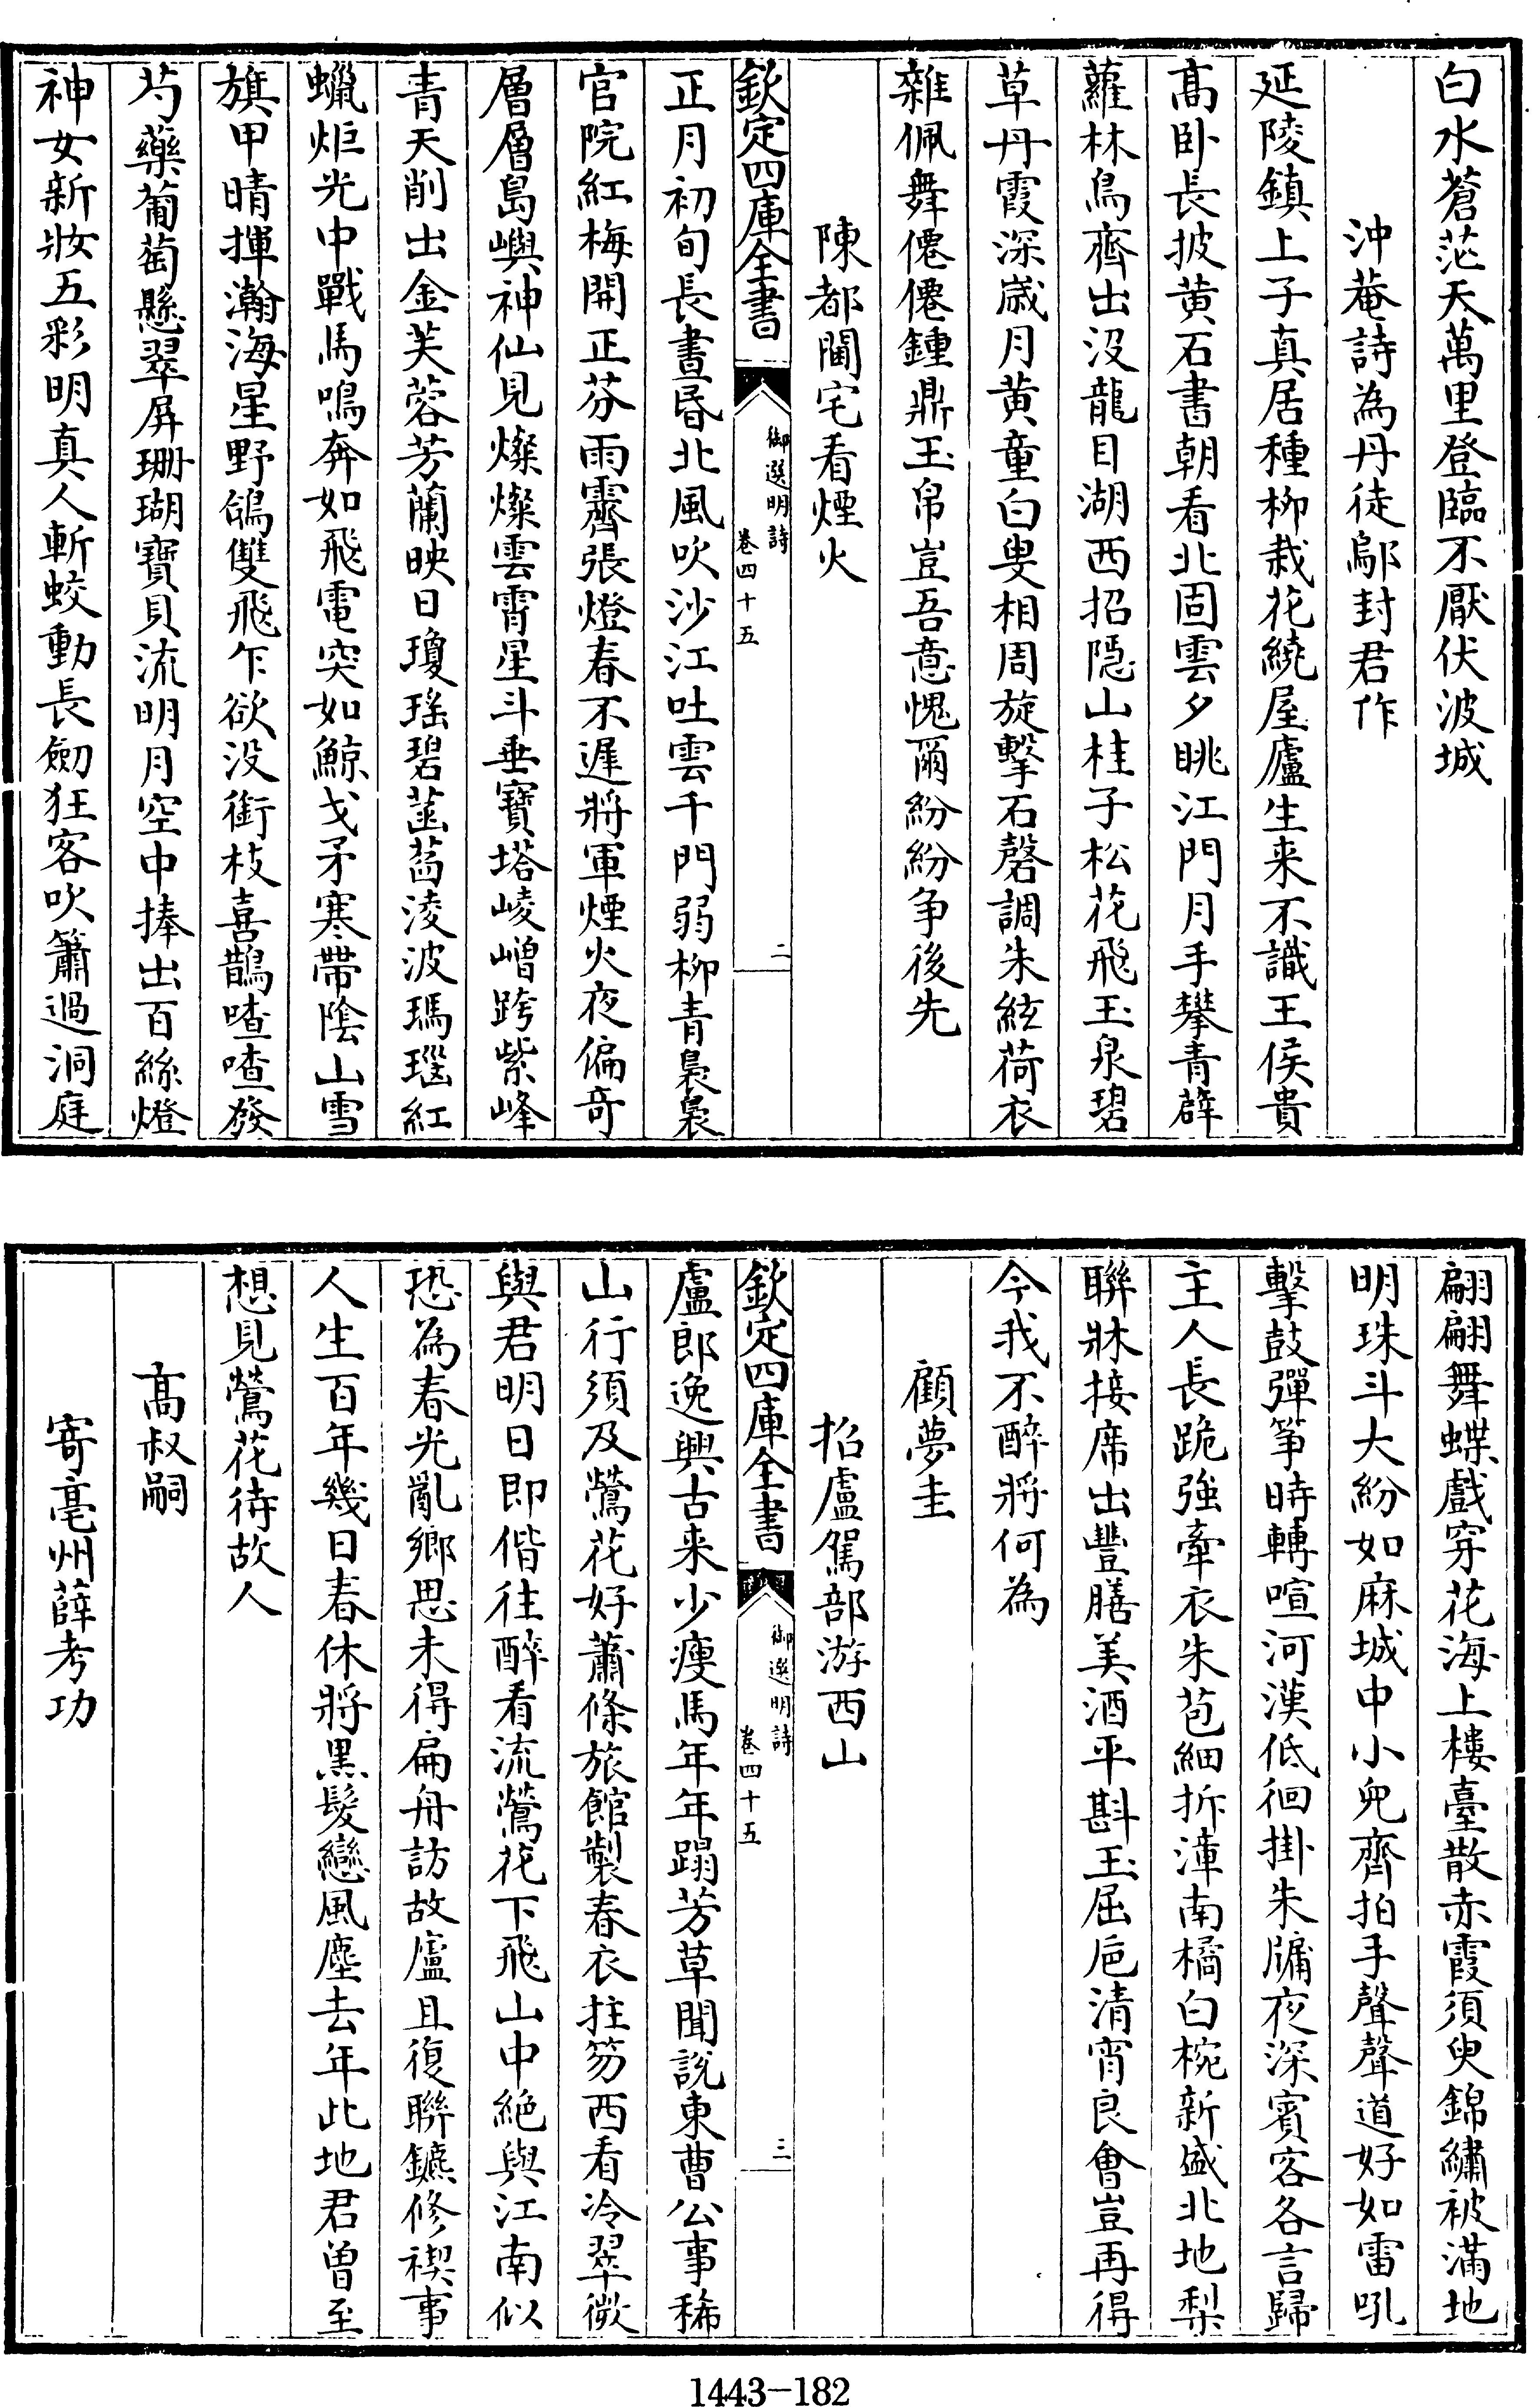 白水蒼茫天萬里登臨不厭伏波城
沖菴詩為丹徒鄔封君作
延陵鎮上子真居種柳栽花繞屋廬生来不識王侯貴
髙卧長披黄石書朝看北固雲夕眺江門月手攀青薜
蘿林鳥齊出没龍目湖西招隠山桂子松花飛玉泉碧
草丹霞深歳月黄童白叟相周旋擊石磬調朱絃荷衣
雜佩舞僊僊鍾鼎玉帛豈吾意愧爾紛紛争後先
陳都閫宅看煙火
欽定四庫全書
御選明詩
卷四十五
二
正月初旬長晝昬北風吹沙江吐雲千門弱柳青裊裊
官院紅梅開正芬雨霽張燈春不遲將軍煙火夜偏奇
層層島嶼神仙見燦燦雲霄星斗垂寶塔崚嶒跨紫峰
青天削出金芙蓉芳蘭映日瓊瑤碧菡萏淩波瑪瑙紅
蠟炬光中戰馬鳴奔如飛電突如鯨戈矛寒帶陰山雪
旗甲晴揮瀚海星野鴿雙飛乍欲没銜枝喜鵲喳喳發
芍藥葡萄懸翠屏珊瑚寶貝流明月空中捧出百絲燈
神女新妝五彩明真人斬蛟動長劒狂客吹簫過洞庭
翩翩舞蝶戲穿花海上樓臺散赤霞須臾錦繡被滿地
明珠斗大紛如麻城中小兒齊拍手聲聲道好如雷吼
擊鼓彈箏時轉喧河漢低徊掛朱牖夜深賓客各言歸
主人長跪強牽衣朱苞細拆漳南橘白椀新盛北地梨
聯牀接席出豐膳美酒平斟玉屈巵清宵良會豈再得
今我不醉將何為
顧夢圭
招盧駕部游西山
欽定四庫全書
御選明詩
卷四十五
三
盧郎逸興古来少瘦馬年年蹋芳草聞說東曹公事稀
山行須及鶯花好蕭條旅館製春衣拄笏西看冷翠微
與君明日即偕往醉看流鶯花下飛山中絶與江南似
恐為春光亂鄉思未得扁舟訪故廬且復聯鑣修禊事
人生百年幾日春休將黒髮戀風塵去年此地君曽至
想見鶯花待故人
髙叔嗣
寄亳州薛考功
1443-182